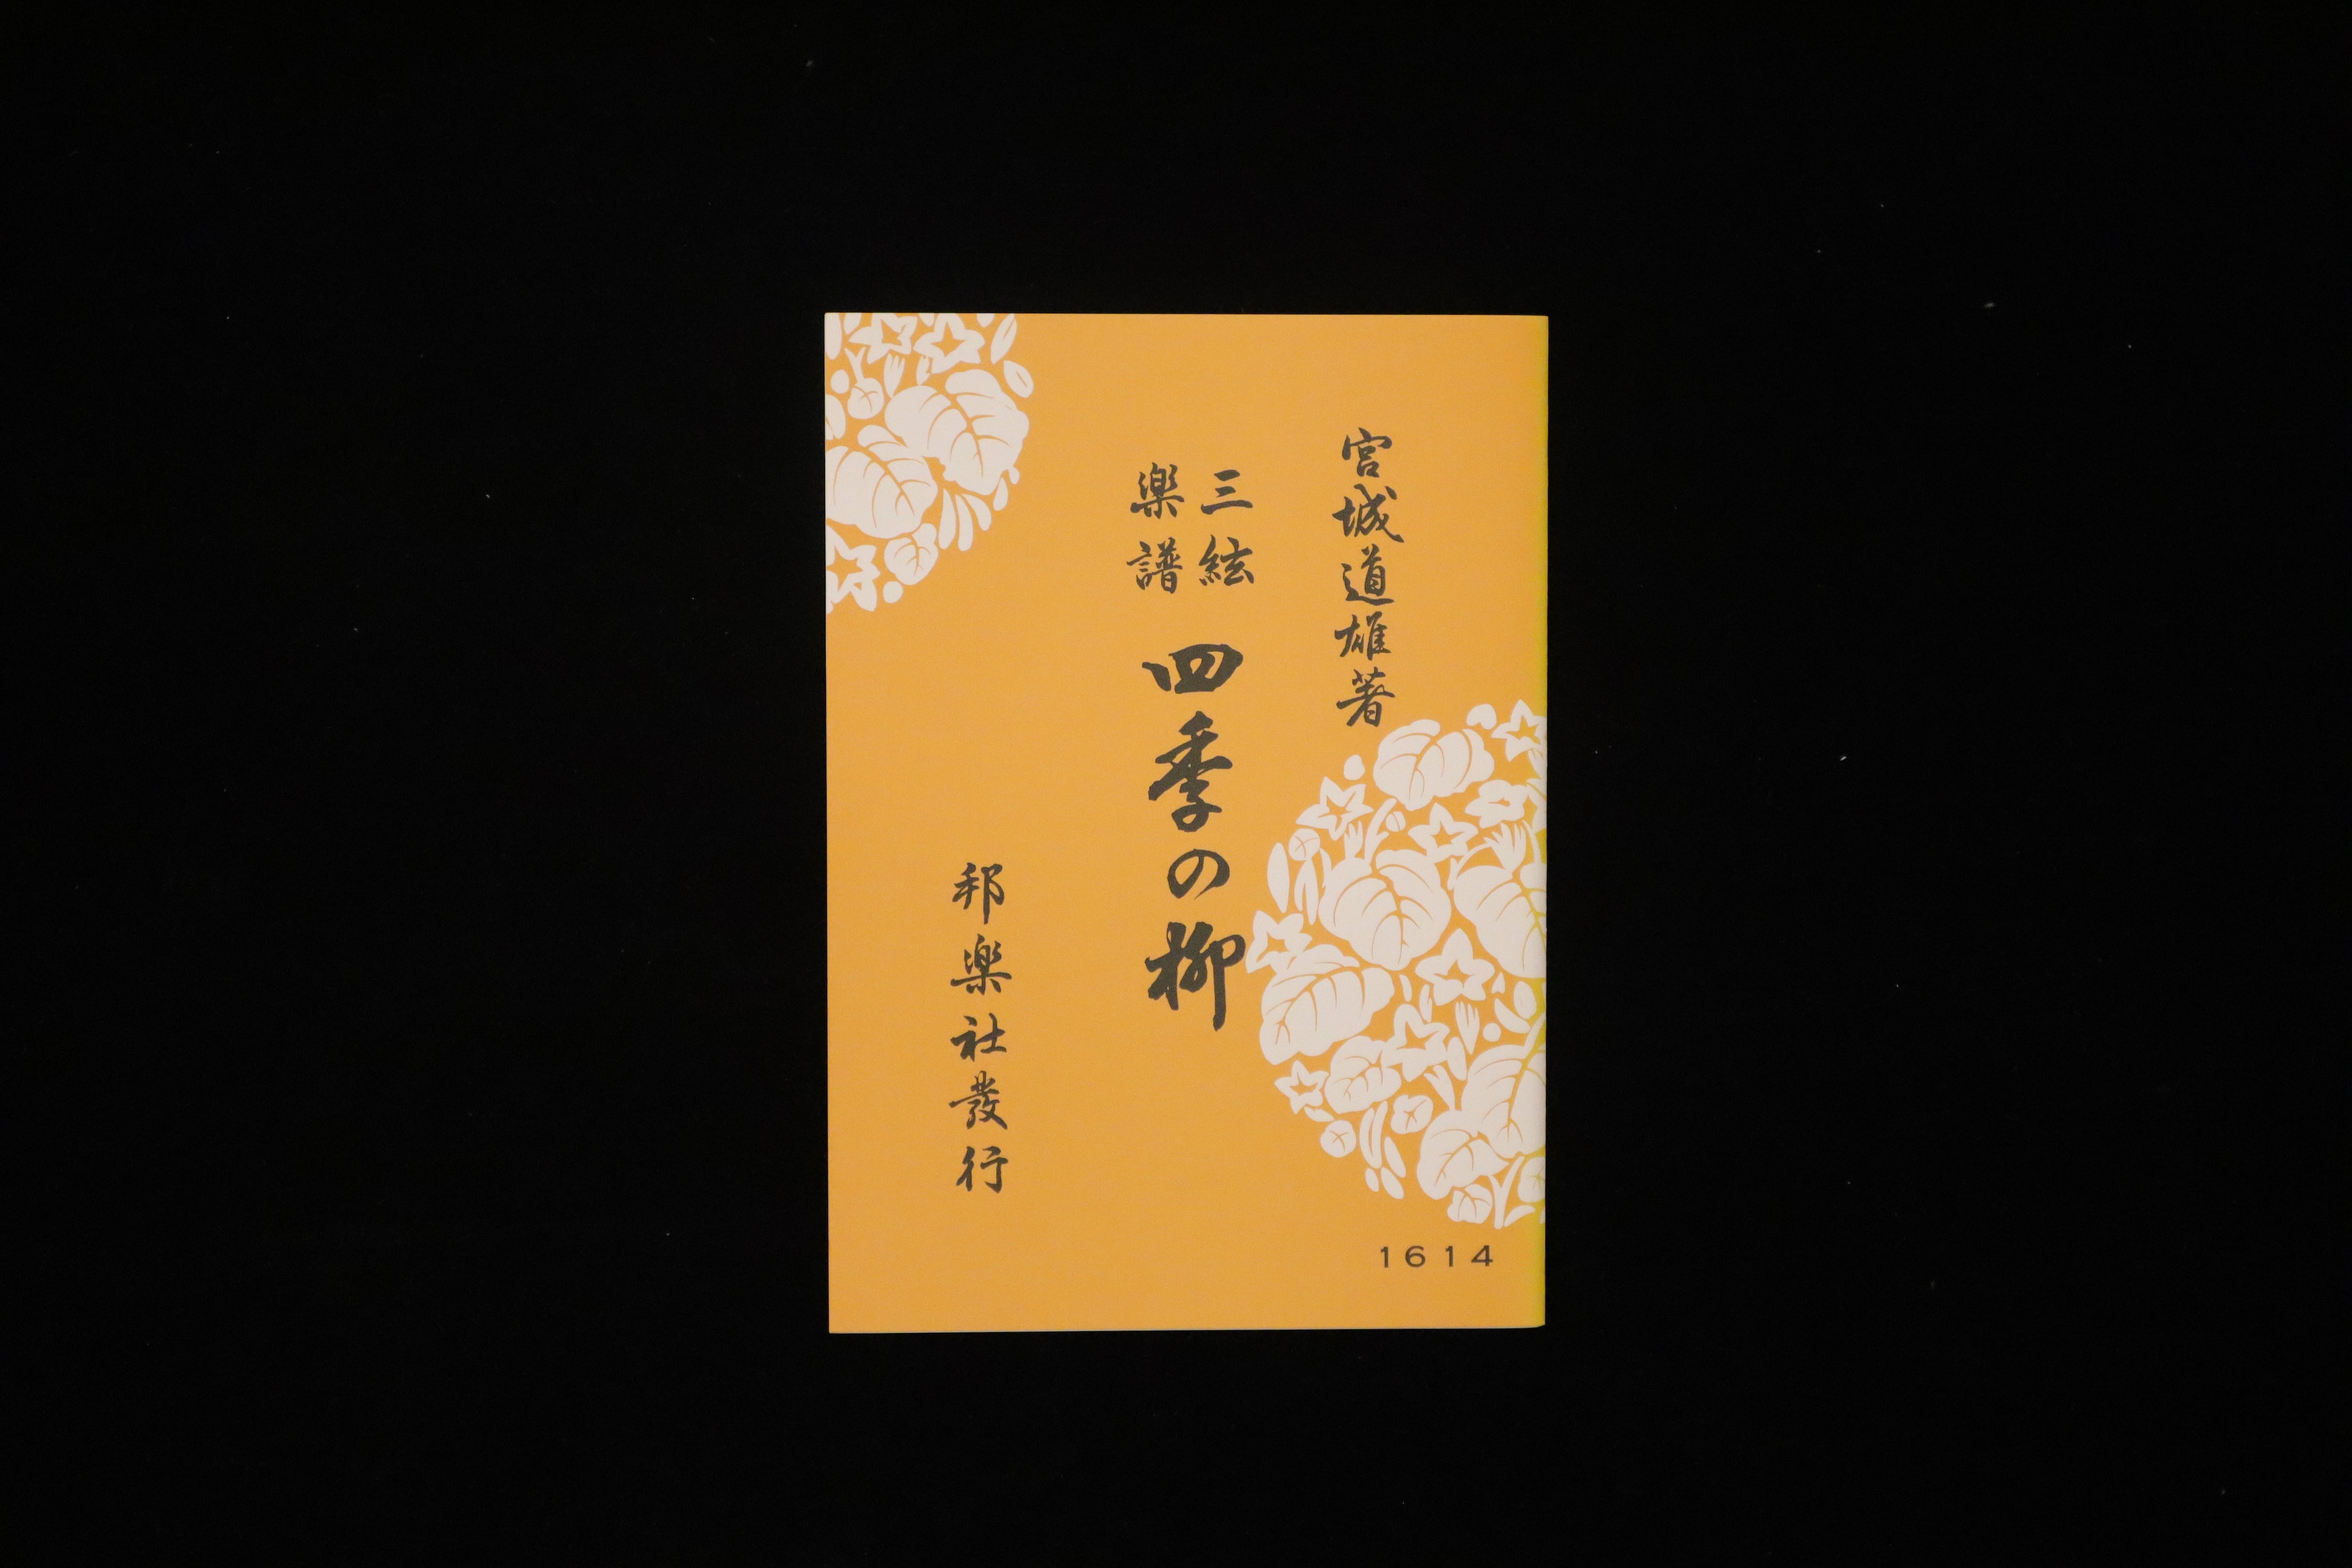 宮城道雄著
三絃
楽譜
四季の柳
邦楽社發行
1614